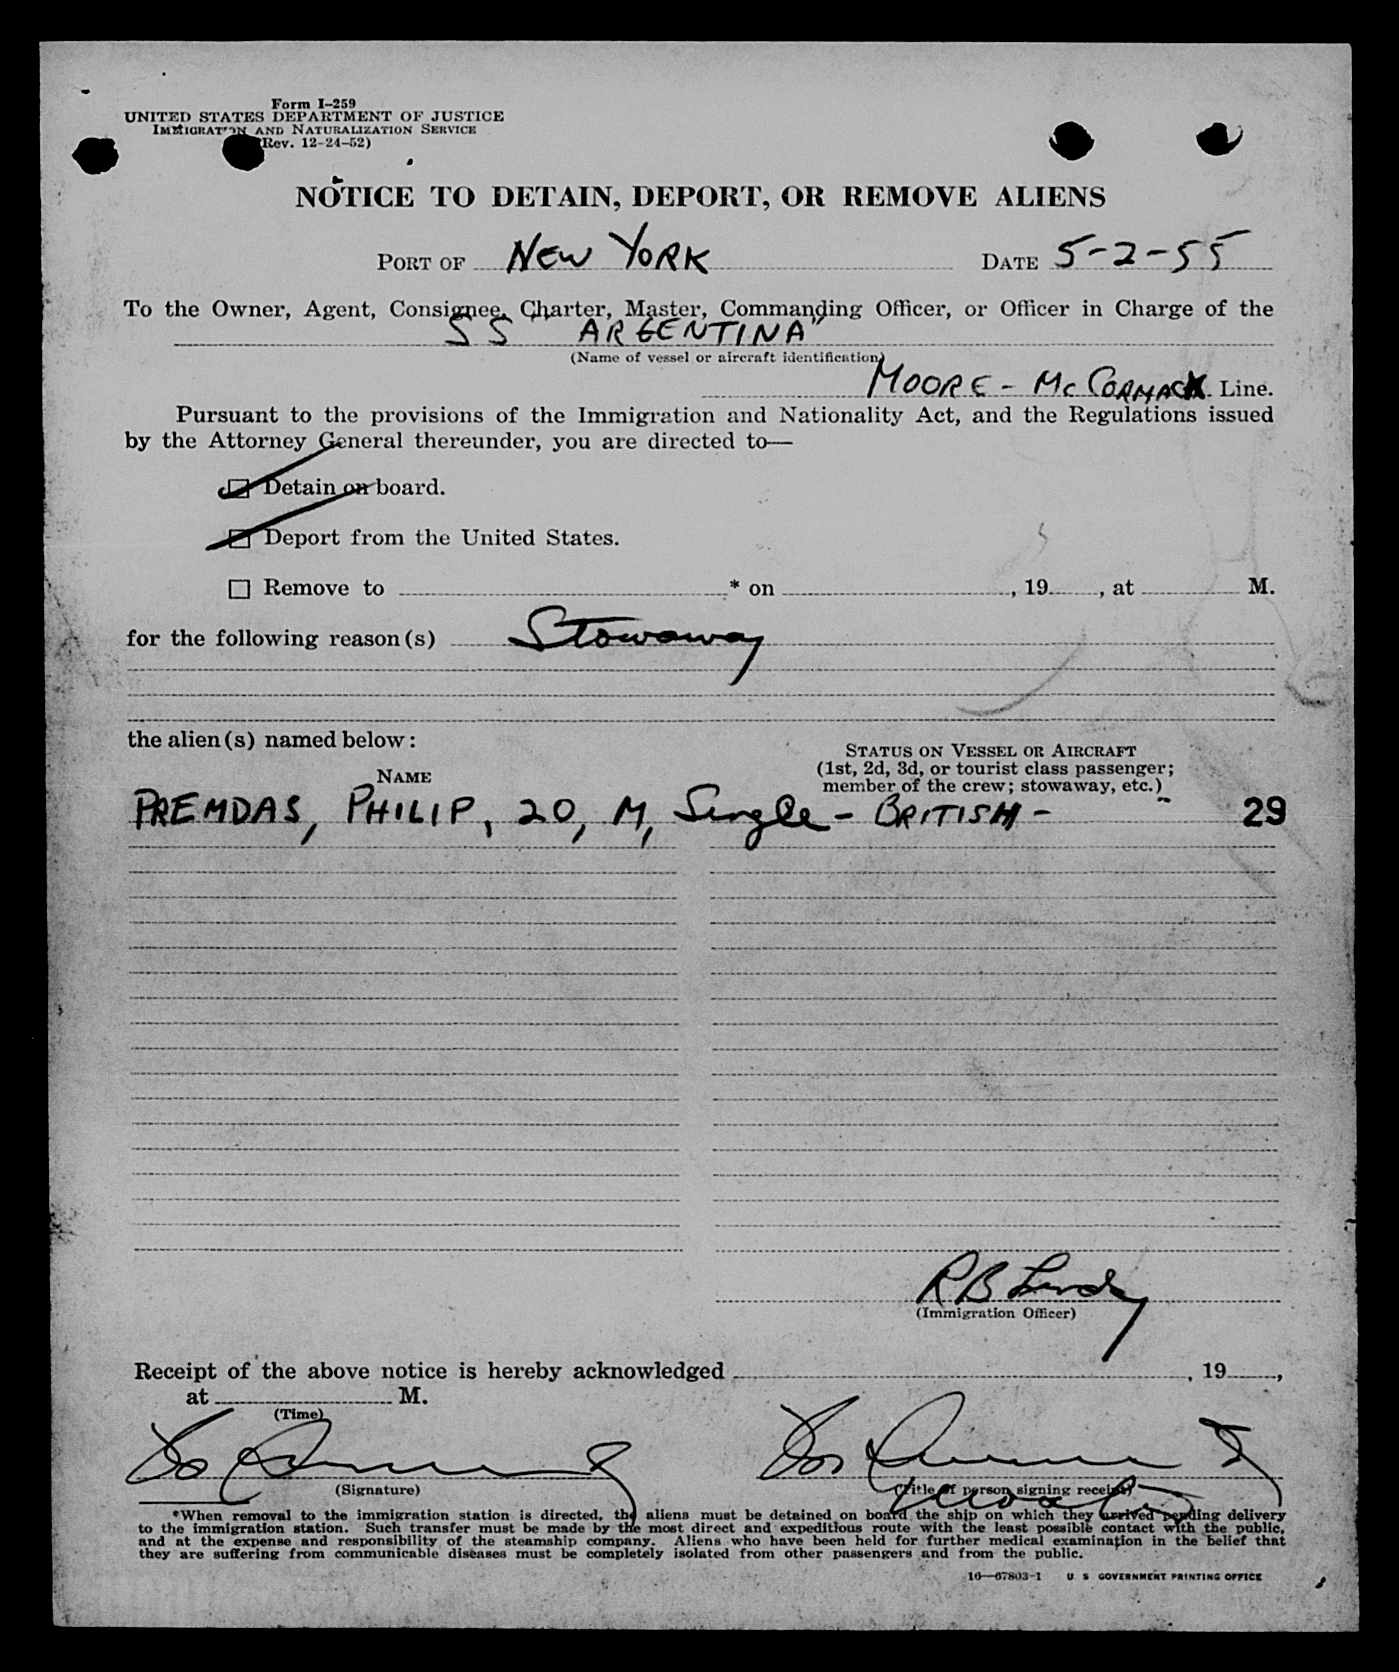 Form I-259
UNITED STATES DEPARTMENT OF JUSTICE
IMMIGRATION AND NATURALIZATION SERVICE
(Rev. 12-24-52)
NOTICE TO DETAIN, DEPORT, OR REMOVE ALIENS
PORT OF NEW YORK DATE 5-2-55
To the Owner, Agent, Consignee, Charter, Master, Commanding Officer, or Officer in Charge of the
SS "ARGENTINA"
(Name of vessel or aircraft identification)
MOORE - MCCORMACK Line.
Pursuant to the provisions of the Immigration and Nationality Act, and the Regulations issued
by the Attorney General thereunder, you are directed to—
Detain on board.
Deport from the United States.
Remove to * on , 19 , at M.
for the following reason(s) Stowaway
the alien(s) named below:
STATUS ON VESSEL OR AIRCRAFT
(1st, 2d, 3d, or tourist class passenger;
NAME
member of the crew; stowaway, etc.)
PREMDAS, PHILIP, 20, M, Single - BRITISH - 29
R B
(Immigration Officer)
Receipt of the above notice is hereby acknowledged , 19 ,
at M.
(Time)
(Signature) (Title of person signing receipt)
*When removal to the immigration station is directed, the aliens must be detained on board the ship on which they arrived pending delivery
to the immigration station. Such transfer must be made by the most direct and expeditious route with the least possible contact with the public,
and at the expense and responsibility of the steamship company. Aliens who have been held for further medical examination in the belief that
they are suffering from communicable diseases must be completely isolated from other passengers and from the public.
16—67803-1 U. S. GOVERNMENT PRINTING OFFICE